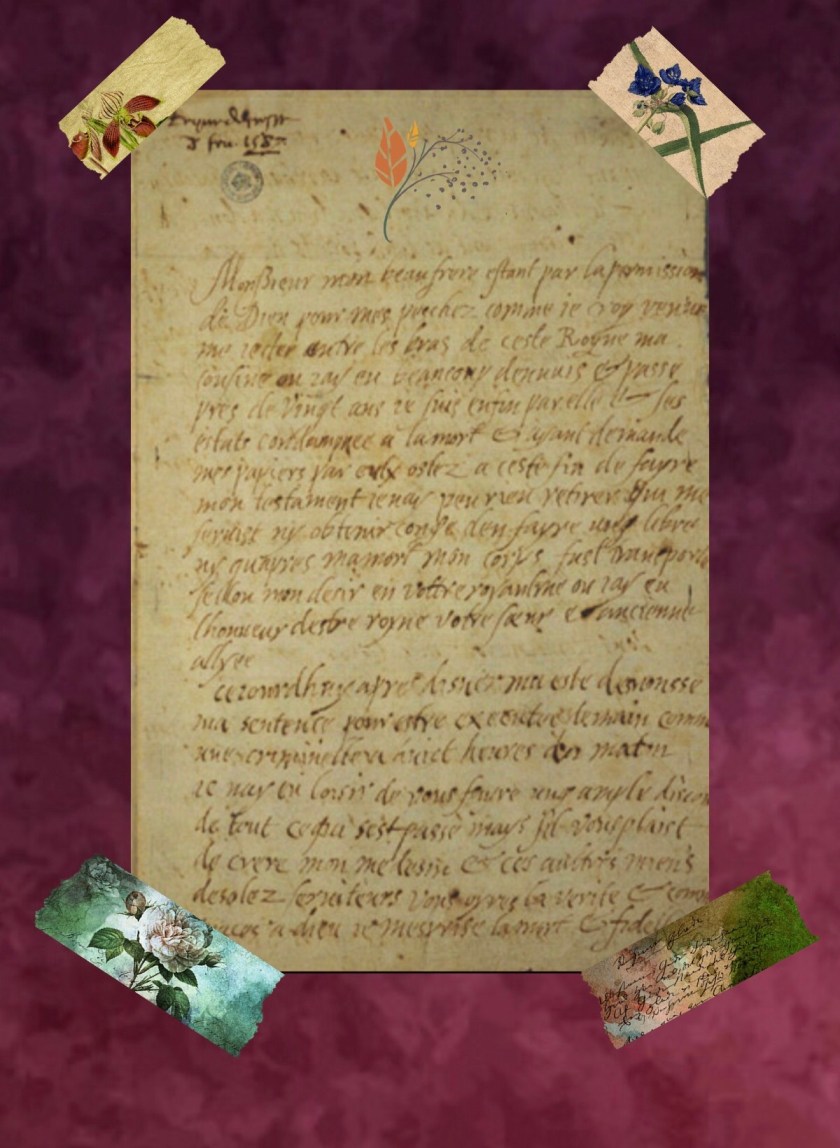 8 feu 1587
Monssieur mon beau frere estant par la permission
de Dieu pour mes peschez comme ie croy venue
me iecter entre les bras de ceste Royne ma
cousine ou iay eu beaucoup dennuis & passe
pres de vingt ans ie suis enfin par elle & ses
estats condampnee a la mort & ayant demande
mes papiers par eulx ostez a ceste fin de fayre
mon testament ie nay peu rien retirer qui me
servist ny obtenir conge den fayre ung libre
ny quapres ma mort mon corps fust transporte
sellon mon desir en votre royaulme ou iay eu
lhonneur destre royne votre sœur & ancienne
allyee
ceiourdhuy apres disner ma este desnonsse
ma sentence pour estre executee demain comme
une criminelle a huict heures du matin
ie nay eu loisir de vous fayre ung ample discours
de tout ce qui sest passe mays sil vous plaist
de crere mon medesin & ces aultres miens
desolez seruiteurs vous oyres la verite & comme
graces a dieu ie mesprise la mort & fidellem